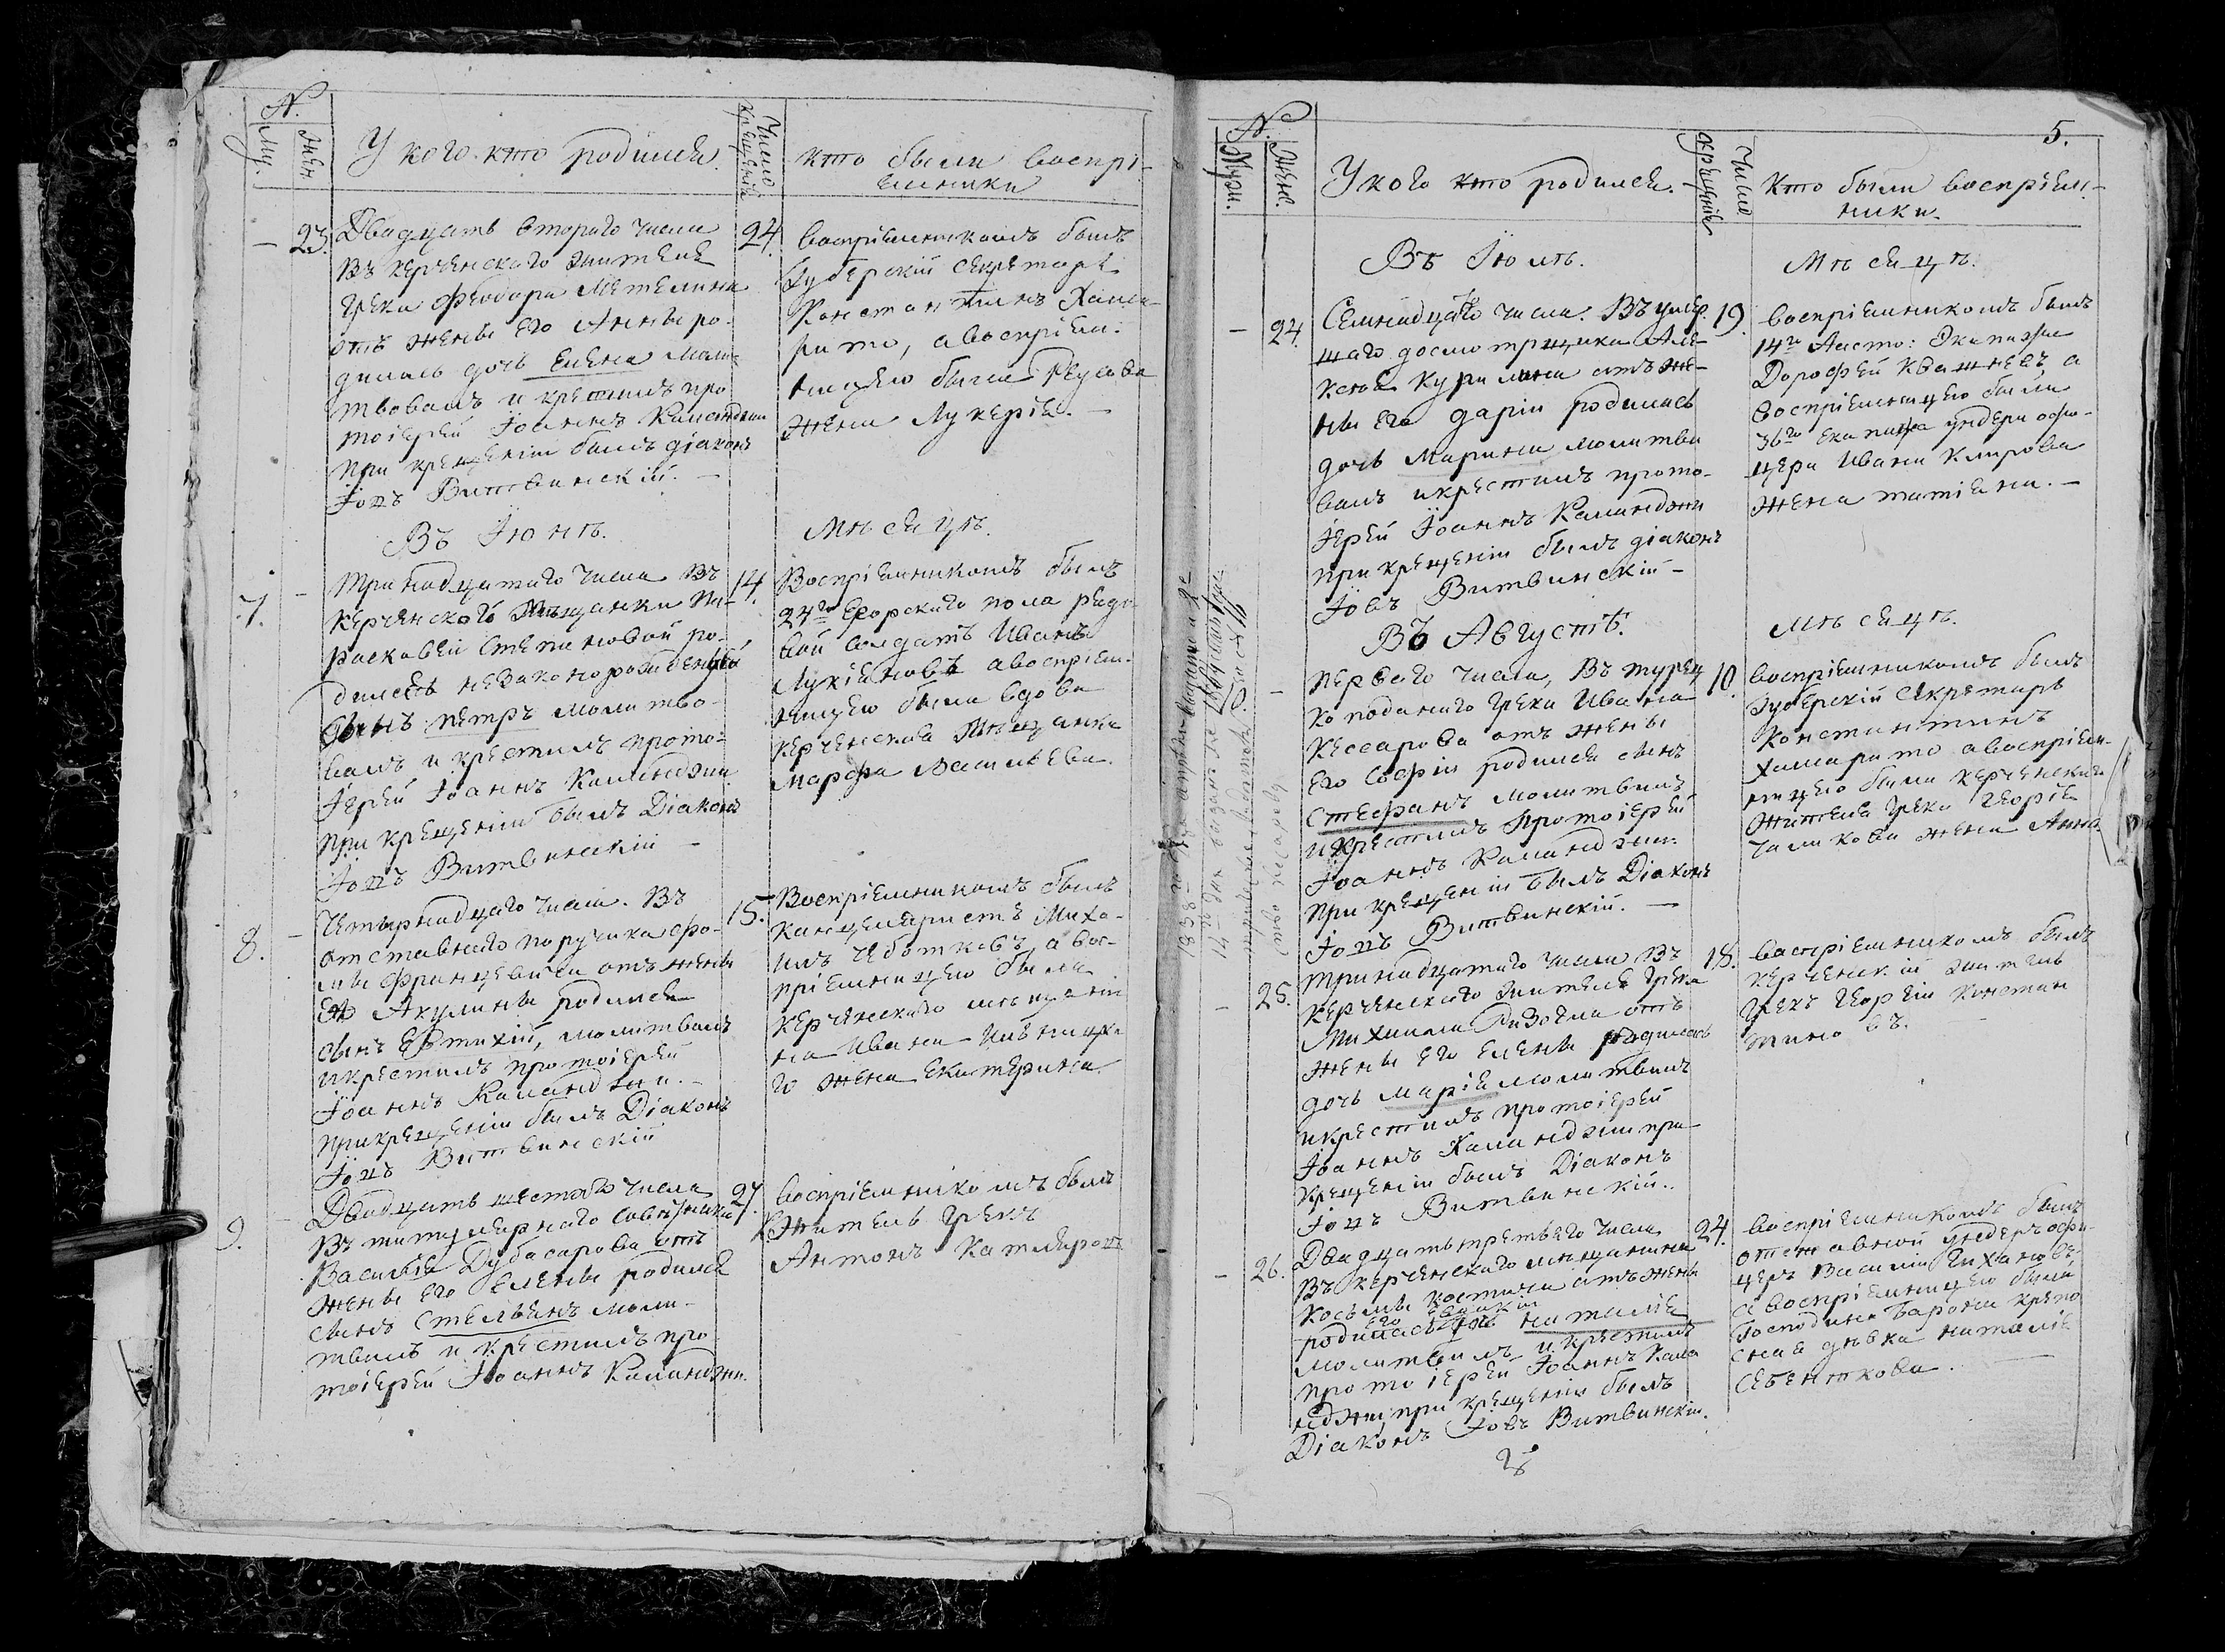 N.
Му.
Жен.
У кого кто родился
Число крещенія
кто были воспрі-
емники
23.
Двадцать второго числа
24.
въ керченского жителя
грека Феодора Метелина
отъ жены его Анны ро-
дилась дочь Елена моли-
твовалъ и крестилъ про
тоіерей Іоаннъ
при крещеніи былъ діаконъ
Іовъ Витвинскій. —
воспріемникомъ былъ
губерскій секретарь
Константинъ Хама-
рито, а воспріем-
ницею была
жена Лукерія. —
Въ Іюнѣ.
Мѣсяцѣ.
7.
Тринадцатаго числа Въ
14.
керченского мѣщанки Па-
расковеи Степановой ро-
дился незаконорожденный
сынъ петръ молитво-
валъ и крестилъ прото-
іерей Іоаннъ Каланджи
при крещеніи былъ Діаконъ
Іовъ Витвинскій —
Воспріемникомъ былъ
24го Егорского полка рядо
вой солдатъ Иванъ
Лукіановъ а воспріем-
ницею была вдова
керченская Мѣщанка
Марфа Васильева.
8.
Четырнадцаго числа. Въ
15.
отставнаго поручика Фо-
мы Францевича отъ жены
его Акулины родился
сынъ Евтихій, молитвалъ
и крестилъ протоіерей
Іоаннъ Каланджи. —
при крещеніи былъ Діаконъ
Іовъ Витвинскій
Воспріемникомъ былъ
канцеляристъ Миха-
илъ Чеботковъ, а вос-
пріемницею была
керченского мѣщани
на Ивана
го жена Екатерина
9.
Двадцать шестого числа
27.
Въ титулярнаго Советника
Василія Дубасарова отъ
жены его Елены родился
сынъ Стельянъ моли-
твилъ и крестилъ про-
тоіерей Іоаннъ Каланджи.
воспріемникомъ былъ
житель грекъ
Антонъ
5.
N.
Муж.
Жен.
У кого кто родился.
Число крещенія
Кто были воспріем-
ники.
Въ Іюлѣ.
Мѣсяцѣ.
24.
Семнадцаго числа. Въ умер-
19.
шаго досмотрщика Але-
ксея Курилина отъ же-
ны его Даріи родилась
дочь Марина молитво
валъ и крестилъ прото-
іерей Іоаннъ Каланджи
при крещеніи былъ діаконъ
Іовъ Витвинскій —
воспріемникомъ былъ
14го Ласто: Экипажа
Дорофей Квашневъ а
воспріемницею была
36го Екипажа ундера офи-
цера Ивана Клирова
жена татіяна. —
Въ Августѣ.
Мѣсяцѣ.
—
Первого числа, Въ турец
10.
ко поданого грека Ивана
Кессарова отъ жены
его Софіи родился сынъ
Стефанъ молитвилъ
и крестилъ Протоіерей
Іоаннъ Каланджи.
при крещеніи былъ Діаконъ
Іовъ Витвинскій. —
воспріемникомъ былъ
губерскій секретарь
Константинъ
Хамарито а воспріем-
ницею была керченского
жителя грека Георгія
Чаликова жена Анна
25.
Тринадцатаго числа Въ
18.
керченского жителя грека
Михаила отъ
жены его Елены родилась
дочь Марія молитвилъ
и крестилъ протоіерей
Іоаннъ Каланджи при
крещеніи былъ Діаконъ
Іовъ Витвинскій..
воспріемникомъ былъ
керченскій житель
грекъ Георгій Констан
тиновъ.
26.
Двадцать третьего числа
24.
Въ керченского мѣщанина
Косьмы Костина отъ жены
его
родилась дочь Наталія
молитвилъ и крестилъ
протоіерей Іоаннъ Кала
нджи, при крещеніи былъ
Діаконъ Іовъ Витвинскій.
воспріемникомъ былъ
отставной ундеръ офи-
церъ Василій Тихановъ
а воспріемницею была
Господина Барона крѣпо
сная дѣвка Наталія
Себенткова. —